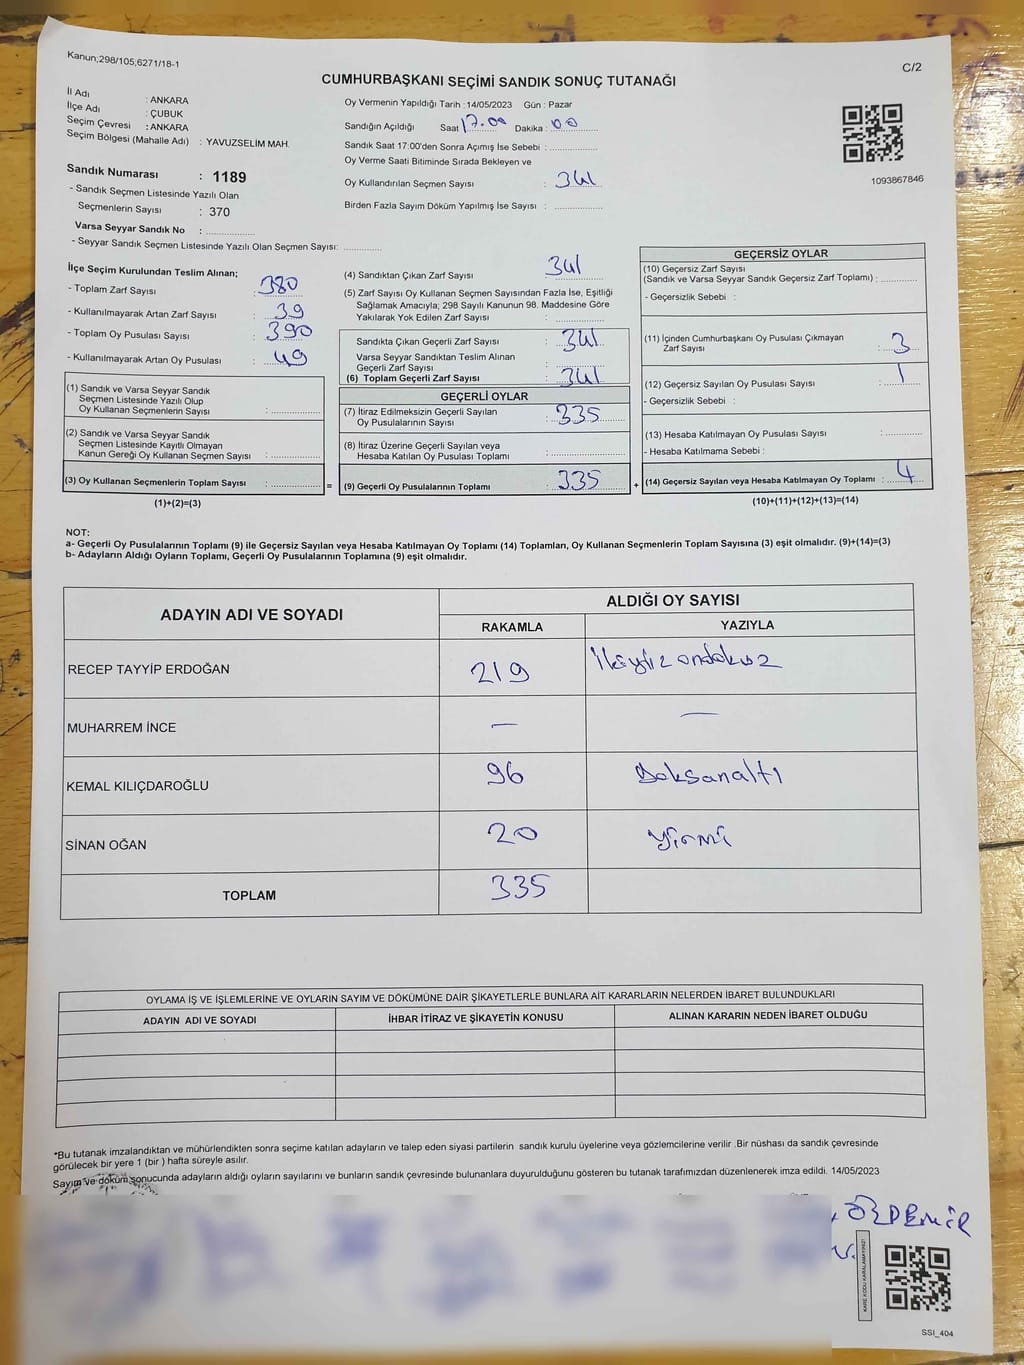 Kanun;298/105;6271/18-1
C/2
CUMHURBAŞKANI SEÇİMİ SANDIK SONUÇ TUTANAĞI
İl Adı : ANKARA
İlçe Adı : ÇUBUK
Seçim Çevresi : ANKARA
Seçim Bölgesi (Mahalle Adı) : YAVUZSELİM MAH.
Sandık Numarası : 1189
- Sandık Seçmen Listesinde Yazılı Olan
Seçmenlerin Sayısı : 370
Varsa Seyyar Sandık No :
- Seyyar Sandık Seçmen Listesinde Yazılı Olan Seçmen Sayısı:
Oy Vermenin Yapıldığı Tarih :14/05/2023 Gün : Pazar
Sandığın Açıldığı Saat 17.00 Dakika : 00
Sandık Saat 17:00'den Sonra Açımış İse Sebebi :
Oy Verme Saati Bitiminde Sırada Bekleyen ve
Oy Kullandırılan Seçmen Sayısı : 341
Birden Fazla Sayım Döküm Yapılmış İse Sayısı :
1093867846
İlçe Seçim Kurulundan Teslim Alınan;
- Toplam Zarf Sayısı : 380
- Kullanılmayarak Artan Zarf Sayısı : 39
- Toplam Oy Pusulası Sayısı : 390
- Kullanılmayarak Artan Oy Pusulası : 49
(1) Sandık ve Varsa Seyyar Sandık
Seçmen Listesinde Yazılı Olup
Oy Kullanan Seçmenlerin Sayısı :
(2) Sandık ve Varsa Seyyar Sandık
Seçmen Listesinde Kayıtlı Olmayan
Kanun Gereği Oy Kullanan Seçmen Sayısı :
(3) Oy Kullanan Seçmenlerin Toplam Sayısı :
(1)+(2)=(3)
(4) Sandıktan Çıkan Zarf Sayısı : 341
(5) Zarf Sayısı Oy Kullanan Seçmen Sayısından Fazla İse, Eşitliği
Sağlamak Amacıyla; 298 Sayılı Kanunun 98. Maddesine Göre
Yakılarak Yok Edilen Zarf Sayısı :
Sandıkta Çıkan Geçerli Zarf Sayısı : 341
Varsa Seyyar Sandıktan Teslim Alınan
Geçerli Zarf Sayısı :
(6) Toplam Geçerli Zarf Sayısı : 341
GEÇERLİ OYLAR
(7) İtiraz Edilmeksizin Geçerli Sayılan
Oy Pusulalarının Sayısı : 335
(8) İtiraz Üzerine Geçerli Sayılan veya
Hesaba Katılan Oy Pusulası Toplamı :
= (9) Geçerli Oy Pusulalarının Toplamı : 335
GEÇERSİZ OYLAR
(10) Geçersiz Zarf Sayısı
(Sandık ve Varsa Seyyar Sandık Geçersiz Zarf Toplamı) :
- Geçersizlik Sebebi :
(11) İçinden Cumhurbaşkanı Oy Pusulası Çıkmayan
Zarf Sayısı : 3
(12) Geçersiz Sayılan Oy Pusulası Sayısı : 1
- Geçersizlik Sebebi :
(13) Hesaba Katılmayan Oy Pusulası Sayısı :
- Hesaba Katılmama Sebebi :
+ (14) Geçersiz Sayılan veya Hesaba Katılmayan Oy Toplamı : 4
(10)+(11)+(12)+(13)=(14)
NOT:
a- Geçerli Oy Pusulalarının Toplamı (9) ile Geçersiz Sayılan veya Hesaba Katılmayan Oy Toplamı (14) Toplamları, Oy Kullanan Seçmenlerin Toplam Sayısına (3) eşit olmalıdır. (9)+(14)=(3)
b- Adayların Aldığı Oyların Toplamı, Geçerli Oy Pusulalarının Toplamına (9) eşit olmalıdır.
ADAYIN ADI VE SOYADI
ALDIĞI OY SAYISI
RAKAMLA YAZIYLA
RECEP TAYYİP ERDOĞAN 219 ikiyüzondokuz
MUHARREM İNCE — —
KEMAL KILIÇDAROĞLU 96 Doksanaltı
SİNAN OĞAN 20 yirmi
TOPLAM 335
OYLAMA İŞ VE İŞLEMLERİNE VE OYLARIN SAYIM VE DÖKÜMÜNE DAİR ŞİKAYETLERLE BUNLARA AİT KARARLARIN NELERDEN İBARET BULUNDUKLARI
ADAYIN ADI VE SOYADI İHBAR İTİRAZ VE ŞİKAYETİN KONUSU ALINAN KARARIN NEDEN İBARET OLDUĞU
*Bu tutanak imzalandıktan ve mühürlendikten sonra seçime katılan adayların ve talep eden siyasi partilerin sandık kurulu üyelerine veya gözlemcilerine verilir .Bir nüshası da sandık çevresinde
görülecek bir yere 1 (bir ) hafta süreyle asılır.
Sayım ve döküm sonucunda adayların aldığı oyların sayılarını ve bunların sandık çevresinde bulunanlara duyurulduğunu gösteren bu tutanak tarafımızdan düzenlenerek imza edildi. 14/05/2023
ÖZDEMİR
SSI_404